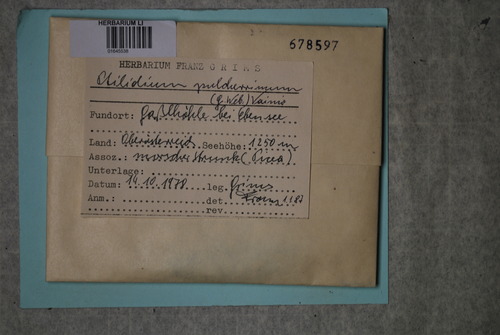 HERBARIUM LI
678597
HERBARIUM FRANZ GRIMS
Ptilidium pulcherrimum
(G. Web.) Vainio
Fundort: Gaßlhöhle bei Ebensee
Land: Oberösterreich Seehöhe: 1250 m
Assoz.: morscher Strunk (Picea)
Unterlage:
Datum: 14.10.1978 leg. Grims
Anm.: det. Franz
rev.